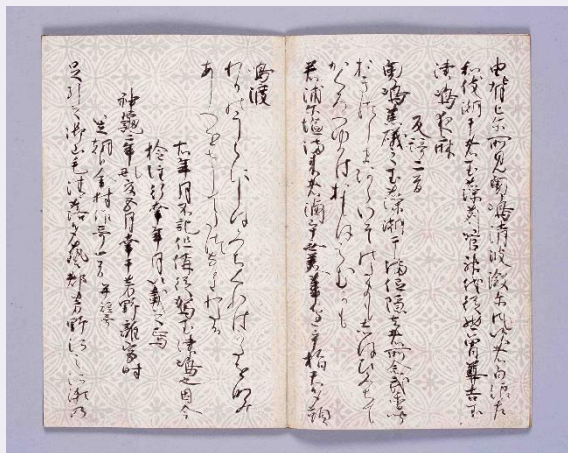 由背匕尓所見奥嶋清波瀲尓風吹者白浪左
和伎潮干者玉藻苅管神代従然曽尊吉玉
津嶋夜麻
反謌二首
奥嶋荒礒之玉藻潮干満伊隠去者所念武香聞
おきつしまあらいそのたまもしほひみちて
ゆけはおもほえむかも
若浦尓塩満来者滷乎無美葦邊乎指天多頭
鳴渡
わかのうらにしほみちくれはかたをなみ
あしへをさしてたつなきわたる
右年月不記但称従駕玉津嶋也因今
検注行幸年月以載之焉
神龜二年乙丑夏五月幸于芳野離宮時
笠朝臣金村作哥一首并短哥
足引之御山毛清落多藝都芳野河之河瀬乃